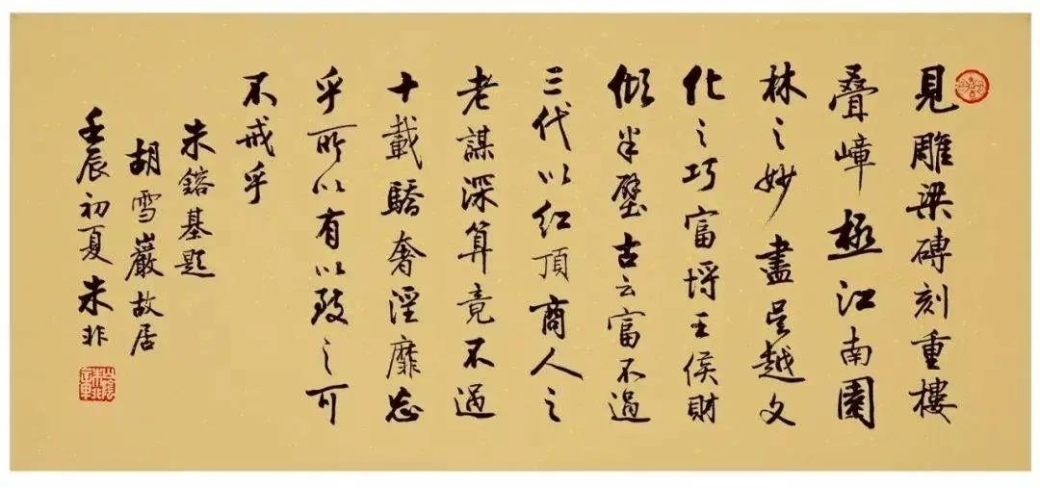 見雕梁磚刻重樓
叠嶂極江南園
林之妙盡吳越文
化之巧富埒王侯財
傾半壁古云富不過
三代以紅頂商人之
老謀深算竟不過
十載驕奢淫靡忘
乎所以有以致之可
不戒乎
朱鎔基題
胡雪巖故居
壬辰初夏朱非